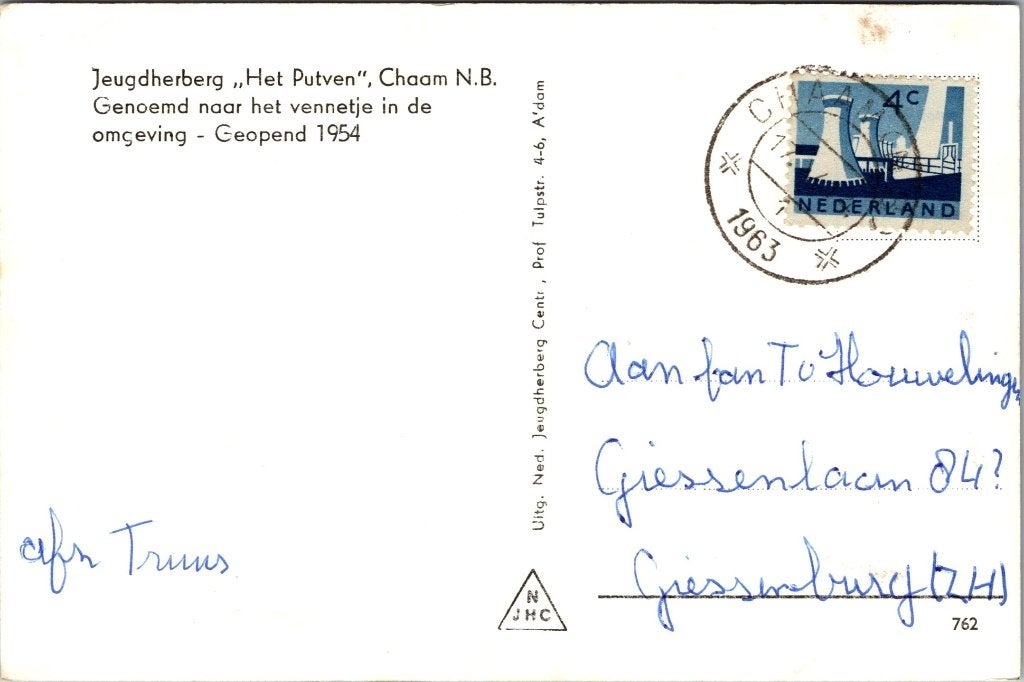 Jeugdherberg „Het Putven", Chaam N.B.
Genoemd naar het vennetje in de
omgeving - Geopend 1954
Uitg. Ned. Jeugdherberg Centr., Prof Tulpstr. 4-6, A'dam
CHAAM
17
1963
4c
NEDERLAND
Aan fan To Houwelingen
Giessenlaan 84?
Giessenburg (ZH)
afz Truus
N
JHC
762